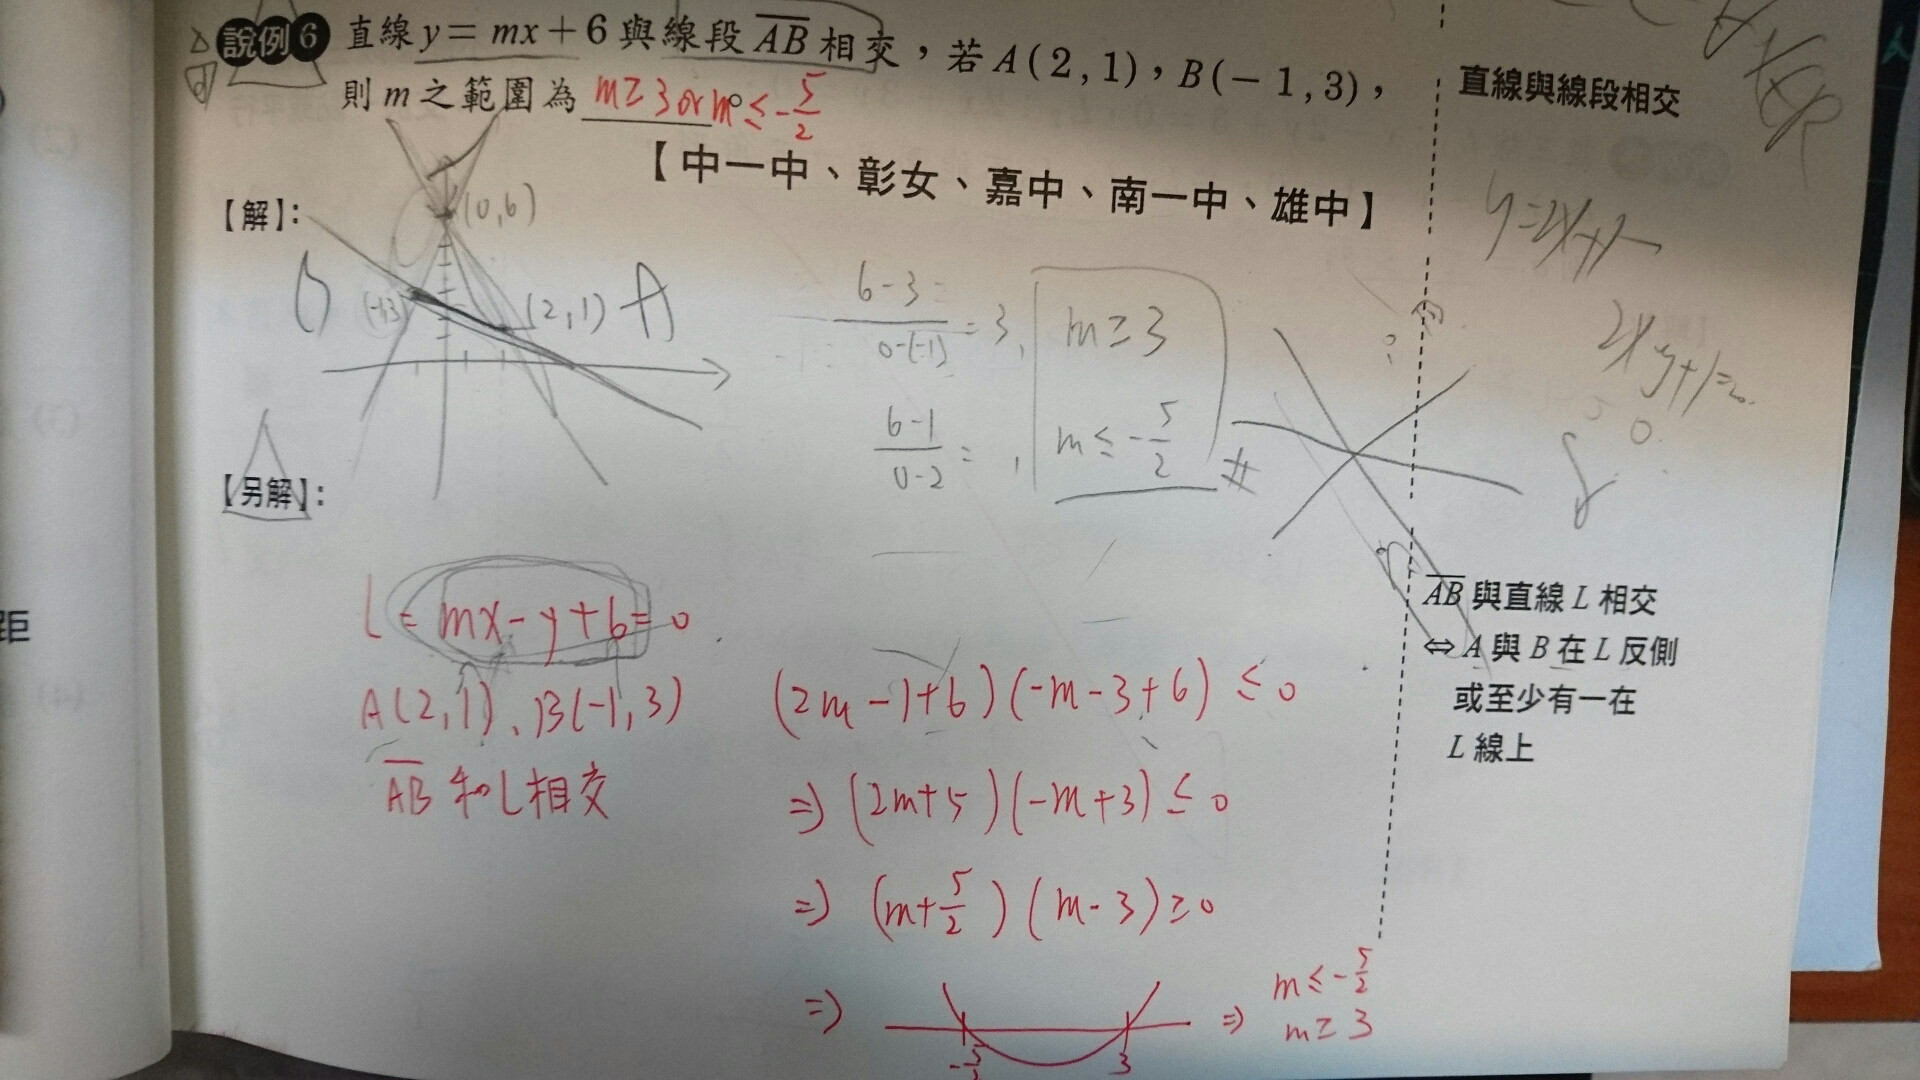 說例6 直線y=mx+6與線段AB相交，若A(2,1)，B(-1,3)，
則m之範圍為 m≥3 or m≤-5/2
【中一中、彰女、嘉中、南一中、雄中】
直線與線段相交
【解】：
(0,6)
(2,1) A
6-3
0-(-1) =3, m≥3
6-1
0-2 = , m≤-5/2 #
【另解】：
L = mx-y+6=0
A(2,1)、B(-1,3)
AB和L相交
(2m-1+6)(-m-3+6)≤0
⇒ (2m+5)(-m+3)≤0
⇒ (m+5/2)(m-3)≥0
⇒ -5/2 3 ⇒ m≤-5/2
m≥3
AB與直線L相交
⇔ A與B在L反側
或至少有一在
L線上
距